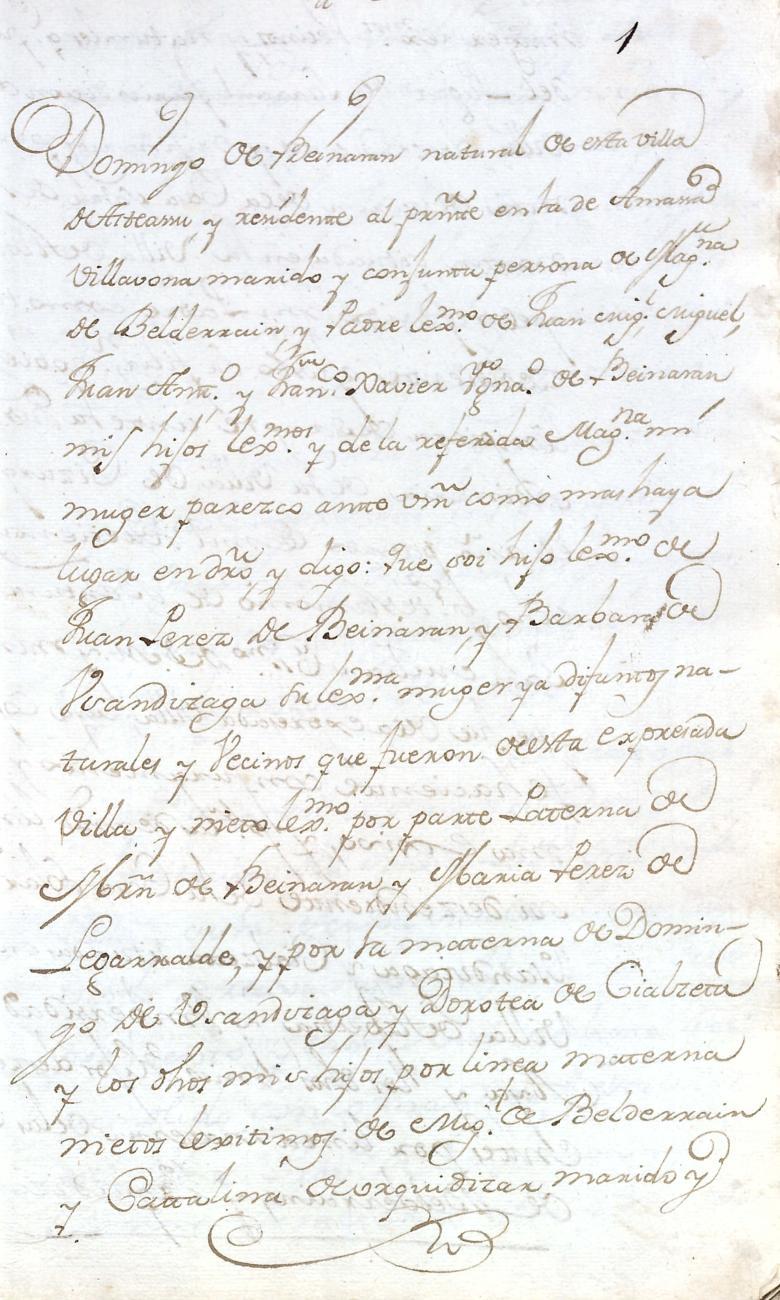 1
Domingo de Beinaran natural de esta villa
de Asteasu y residente al presnte en la de Amasa
Villavona marido y conjunta persona de Mag.na
de Belderrain, y Padre lex.mo de Juan Mig.l Miguel,
Juan Ant.o y Fran.co Xavier Ygna.o de Beinaran
mis hijos lex.mos y de la referida Mag.na mi
muger parezco ante vm como mas haya
lugar en dro, y digo: que soi hijo lex.mo de
Juan Perez de Beinaran, y Barbara de
Vsandizaga su lex.ma muger ya difuntos na-
turales y Vecinos que fueron de esta expresada
Villa y nieto lex.mo por parte Paterna de
Mrñ de Beinaran y Maria Perez de
Legarralde, y por la materna de Domin-
go de Vsandizaga y Dorotea de Cialzeta
y los dhos mis hijos por linea materna
nietos lexitimos de Mig.l de Belderrain
y Cattalina de orquidizar marido y